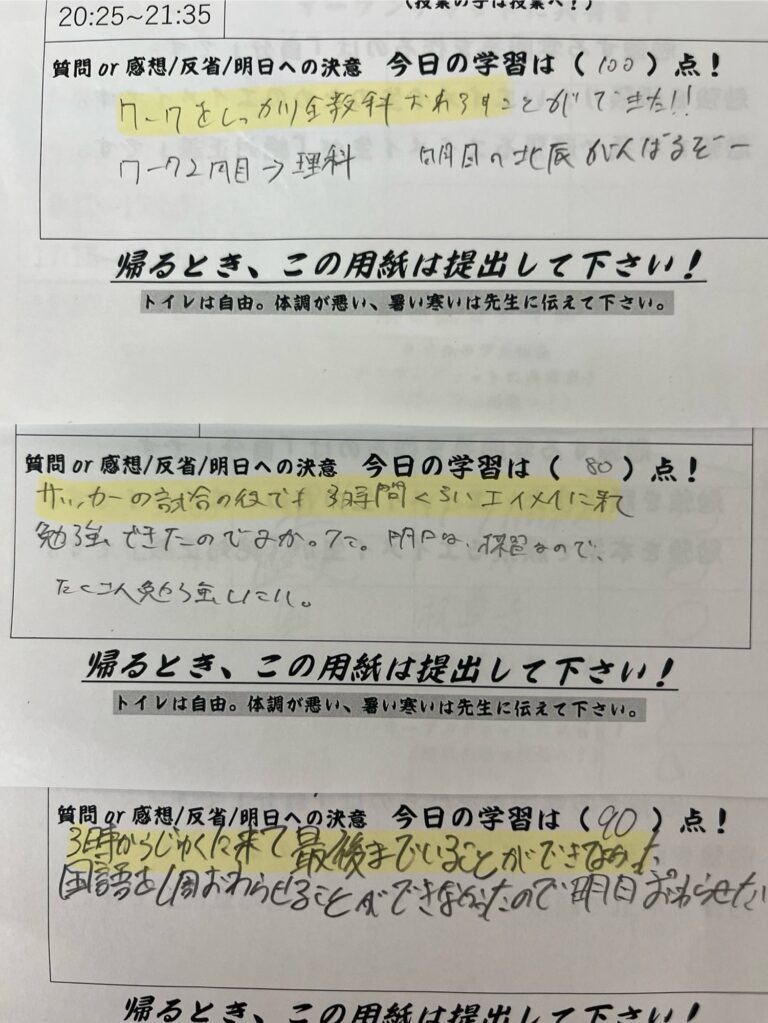 20:25~21:35
(授業の子は授業へ!)
質問 or 感想/反省/明日への決意 今日の学習は( 100 )点!
ワークをしっかり全教科おわらすことができた!!
ワーク2周目→理科 明日の北辰がんばるぞー
帰るとき、この用紙は提出して下さい!
トイレは自由。体調が悪い、暑い寒いは先生に伝えて下さい。
質問 or 感想/反省/明日への決意 今日の学習は( 80 )点!
サッカーの試合の後でも3時間くらいエイメイに来て
勉強できたのでよかった。明日は、なので、
たくさん勉強したい。
帰るとき、この用紙は提出して下さい!
トイレは自由。体調が悪い、暑い寒いは先生に伝えて下さい。
質問 or 感想/反省/明日への決意 今日の学習は( 90 )点!
3時からじゅくに来て最後までいることができ
国語を1周おわらせることができなかったので明日おわらせたい
帰るとき、この用紙は提出して下さい!